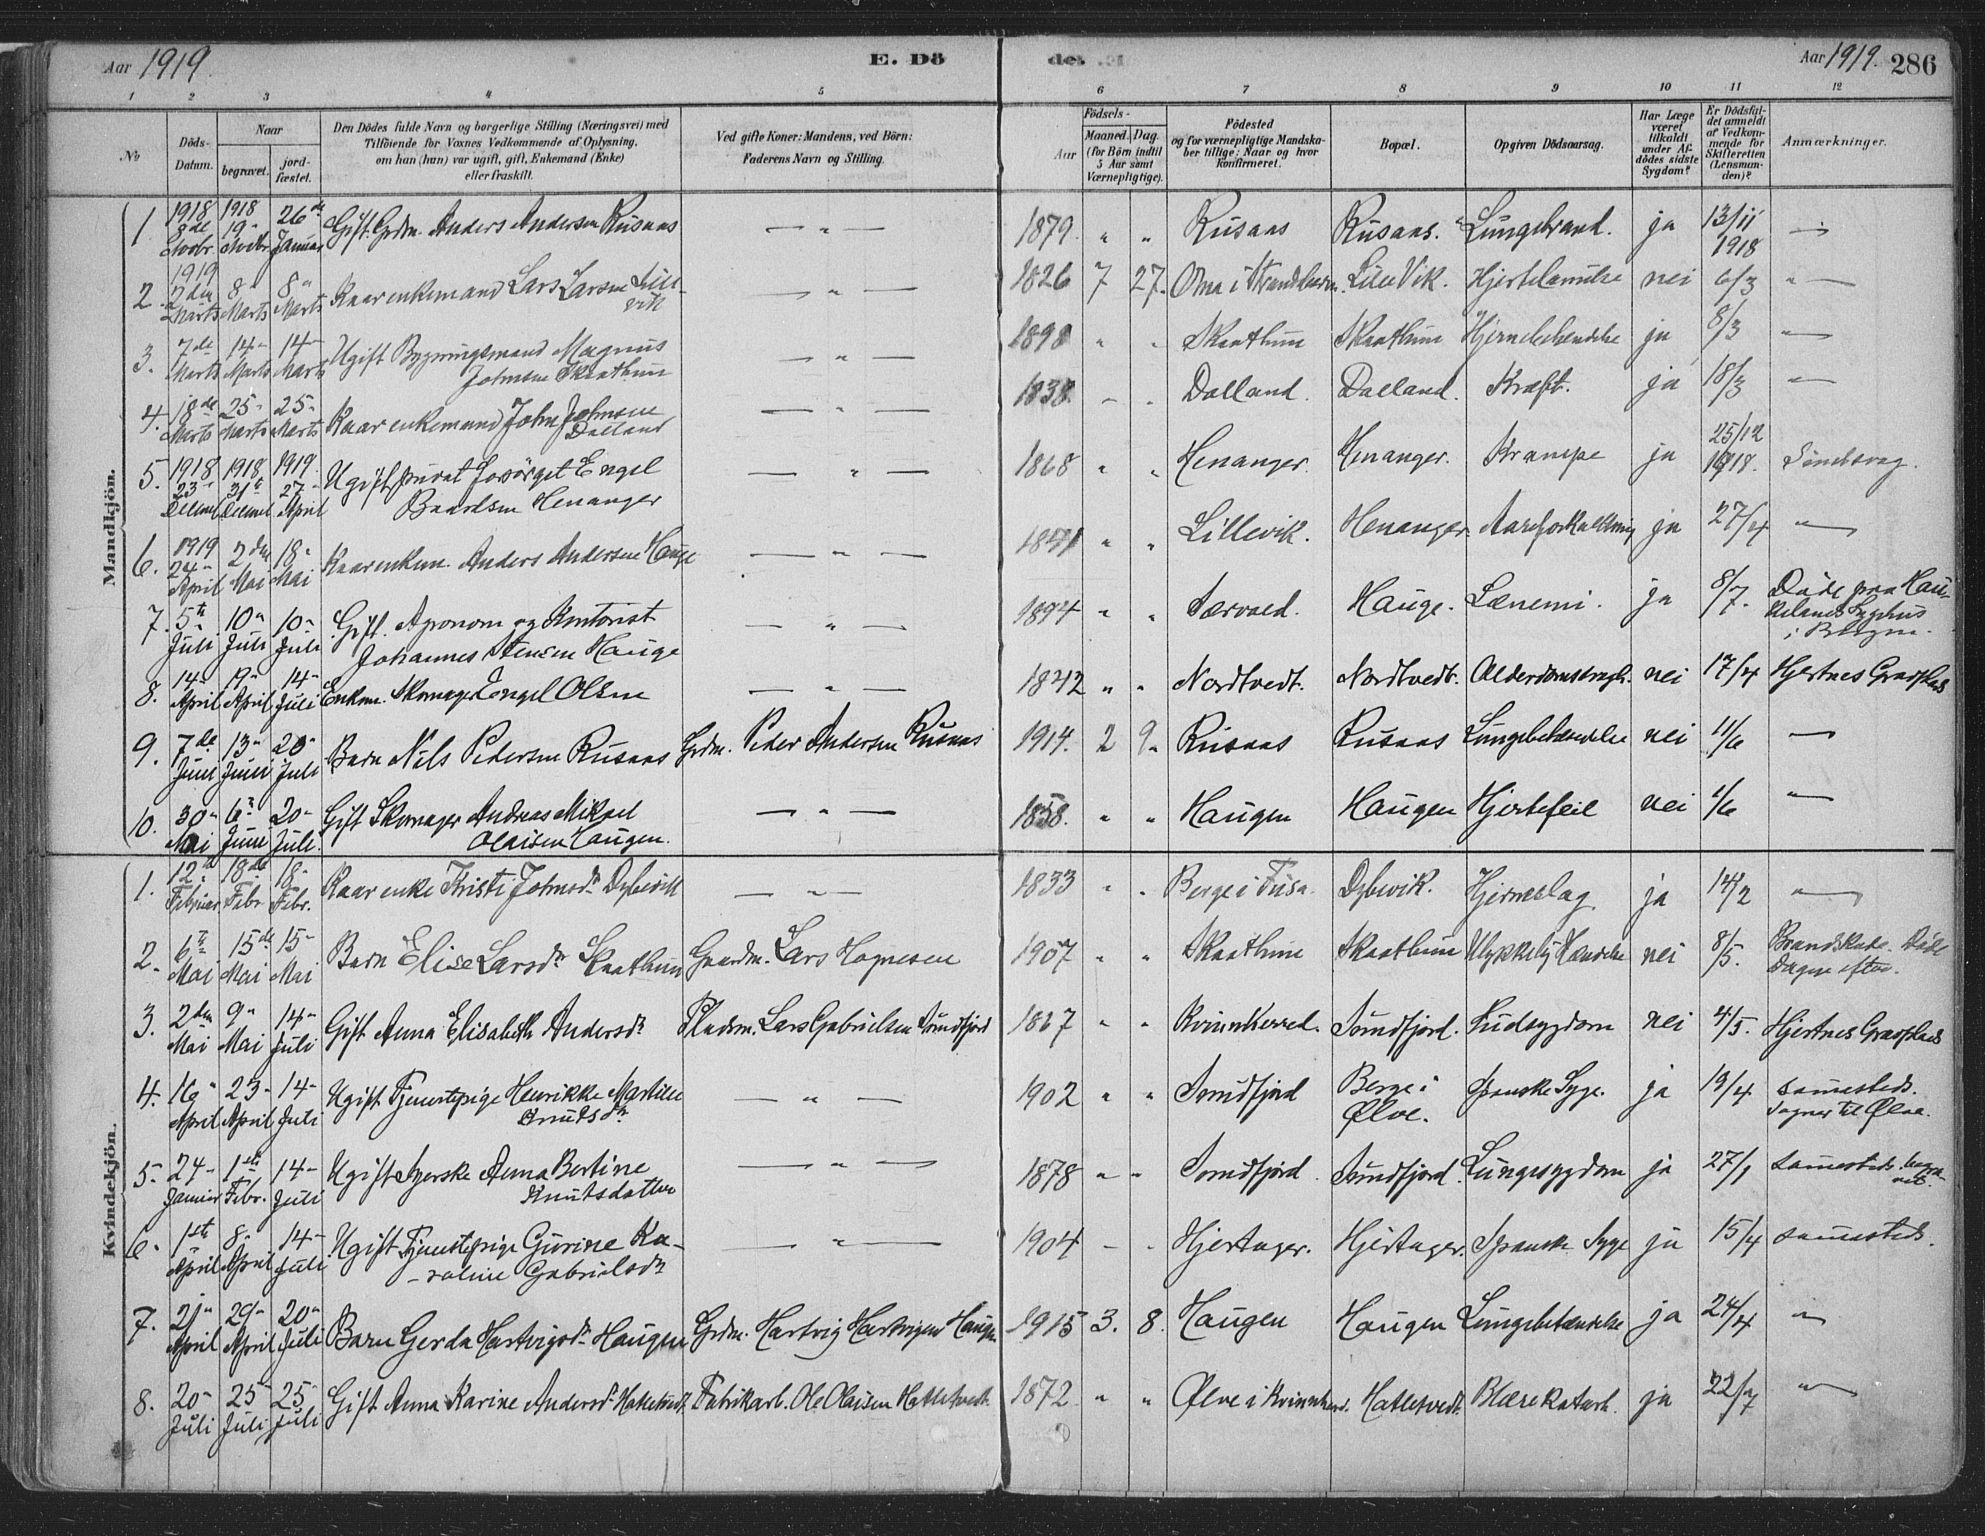 Aar 1919.
E. Dö
de
Aar 1919.
286
1 2 3 4 5 6 7 8 9 10 11 12
No
Döds-
Datum.
Naar
begravet.
jord-
fæstet.
Den Dödes fulde Navn og borgerlige Stilling (Næringsvei) med
Tilföiende for Voxnes Vedkommende af Oplysning,
om han (hun) var ugift, gift, Enkemand (Enke)
eller fraskilt.
Ved gifte Koner: Mandens, ved Börn:
Faderens Navn og Stilling.
Födsels-
Aar
Maaned. Dag.
(for Börn indtil
5 Aar samt
Værnepligtige).
Födested
og for værnepligtige Mandska-
ber tillige: Naar og hvor
konfirmeret.
Bopæl.
Opgiven Dödsaarsag.
Har Læge
været
tilkaldt
under Af-
dödes sidste
Sygdom?
Er Dödsfal-
det anmeldt
af Vedkom-
mende for
Skifteretten
(Lensman-
den)?
Anmærkninger.
Mandkjön.
1 1918 8de Novbr. 1918 19" Novbr. 26de Januar Gift. Grdm. Anders Andersen Rusaas — " — 1879. " " Rusaas Rusaas. Lungebrand. ja 13/11 1918 —
2. 1919 2den Marts 8" Marts 8" Marts Kaarenkemand Lars Larsen Lille-
vik — " — 1826 7 27. Oma i Strandebarm. Lille Vik. Hjertelamelse nei 6/3 "—
3. 7de Marts 14- Marts 14- Marts Ugift Bygningsmand Magnus
Johnsen Skaathun — " — 1898 " " Skaathun Skaathun Hjernebetændelse ja 8/3 "—
4. 18de Marts 25- Marts 25- Marts Kaarenkemand John Johnsen
Dalland — " — 1838. - " Dalland. Dalland. Kræft. ja 18/3 "—
5. 1918 23" Decmbr 1918 31te Decmbr 1919. 27- April Ugift privat forsörget Engel
Baardsen Henanger — " — 1868 " " Henanger. Henanger. Krampe ja 25/12 1918. Sindssvag.
6. 1919 24" April 2den Mai 18" Mai Kaarenkem. Anders Andersen Hauge — " — 1841 " " Lillevik. Henanger Aareforkalkning ja 27/4 "—
7. 5te Juli 10" Juli 10- Juli Gift. Agronom og Kontorist
Johannes Hauge — " — 1894 " " Hauge. ja 8/7. Döde paa Hau-
kelands Sygehus
i Bergen.
8. 14- April 19- April 14- Juli Enkem. Skomager Engel Olsen — " — 1842 " " Nordtvedt. Nordtvedt. Alderdomssvagh. nei 17/4 Hjertnes Gravplads
9. 7de Juni 13- Juni 20- Juli Barn Nils Pedersen Rusaas Grdm. Peder Andersen Rusaas 1914. 2 9. Rusaas Rusaas Lungebetændelse nei 11/6 "—
10. 30- Mai 6" Juni 20- Juli. Gift Skomager Andreas Mikael
Olaisen Haugen. — " — 1858. " " Haugen Haugen Hjertefeil nei 1/6 "—
Kvindekjön.
1. 12- Februar 18de Febr. 18- Febr. Kaarenke Kristi Johnsdr. Dybevik — " — 1833 " " Berge i Fusa. Dybevik. Hjerneslag ja 14/2 "—
2. 6te Mai 15de Mai 15- Mai Barn Elise Larsdr. Skaathun Gaardm. Lars Hognesen 1907 " " Skaathun Skaathun Ulykkelig Hændelse nei 8/5. Brandskade. Döde
Dagen efter.
3. 2den Mai 9" Mai 14- Juli Gift Anna Elisabeth Andersdr. Pladsm. Lars Gabrielsen Sundfjord 1867 " " Kvinnherred. Sundfjord. Hudsygdom nei 4/5. Hjertnes Gravplads
4. 16" April 23- April 14- Juli Ugift Tjenestepige Henrikke Martine
Knutsdr. — " — 1902 " " Sundfjord Berge i
Ølve. Spanske Syge. ja 19/4 sammesteds.
Sogner til Ølve.
5- 24- Januar 1ste Febr. 14- Juli Ugift Syerske Anna Bertine
Knutsdatter — " — 1878 " " Sundfjord Sundfjord. Lungesygdom ja 27/1 sammesteds. begra-
vet.
6- 1ste April 8- April 14- Juli Ugift Tjenestepige Gurine Ka-
-roline Gabrielsdr. — " — 1904 - - Hjertager. Hjertager. Spanske Syge ja 15/4 sammesteds.
7. 21" April 29- April 20" Juli Barn Gerda Hartvigsdr. Haugen Grdm. Hartvig Hartvigsen Haugen 1915 3. 8. Haugen Haugen Lungebetændelse ja 24/4 "
8. 20- Juli 25- Juli 25- Juli Gift Anna Karine Andersdr. Hatletvedt. Fabrikarb. Ole Olaisen Hatletvedt. 1872 " " Ølve i Kvinnherd. Hatletvedt. Blærekatarh. ja 22/7 "—